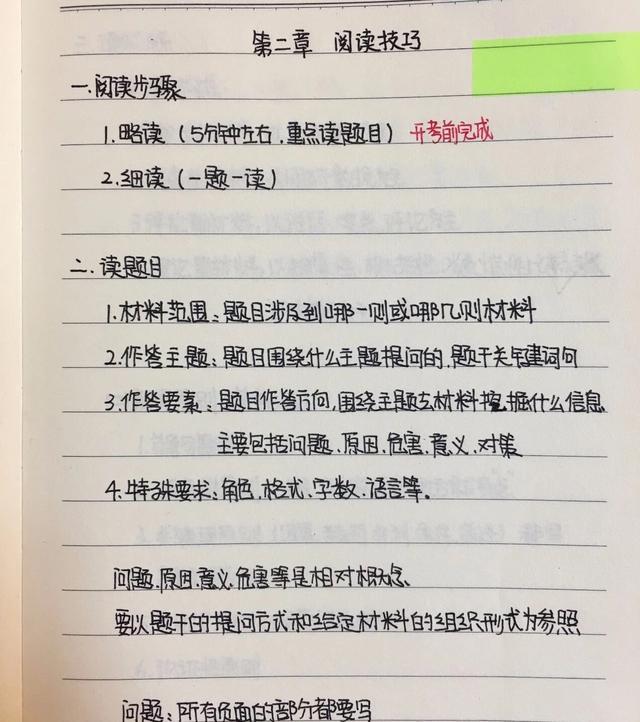 第二章 阅读技巧
一.阅读步骤
1.略读（5分钟左右,重点读题目） 开考前完成
2.细读（一题一读）
二.读题目
1.材料范围:题目涉及到哪一则或哪几则材料
2.作答主题:题目围绕什么主题提问的、题干关键词句
3.作答要素:题目作答方向,围绕主题去材料挖掘什么信息
主要包括问题、原因、危害、意义、对策
4.特殊要求:角色、格式、字数、语言等。
问题、原因、意义、危害等是相对概念
要以题干的提问方式和给定材料的组织形式为参照
问题:所有负面的部分都要写